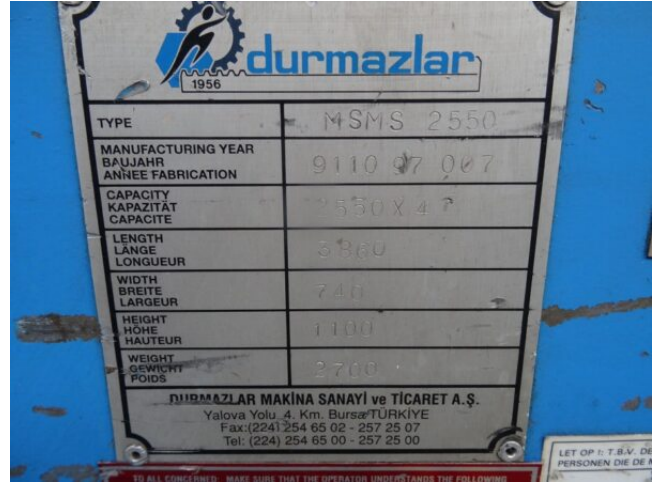 durmazlar
1956
TYPE MSMS 2550
MANUFACTURING YEAR
BAUJAHR
ANNEE FABRICATION
9110 97 007
CAPACITY
KAPAZITÄT
CAPACITE
LENGTH
LÄNGE
LONGUEUR
WIDTH
BREITE
LARGEUR
740
HEIGHT
HÖHE
HAUTEUR
1100
WEIGHT
GEWICHT
POIDS
2700
DURMAZLAR MAKİNA SANAYİ ve TİCARET A.Ş.
Yalova Yolu 4. Km. Bursa/TÜRKİYE
Fax:(224) 254 65 02 - 257 25 07
Tel: (224) 254 65 00 - 257 25 00
TO ALL CONCERNED MAKE SURE THAT THE OPERATOR UNDERSTANDS THE FOLLOWING
LET OP !: T.B.V. DE
PERSONEN DIE DE